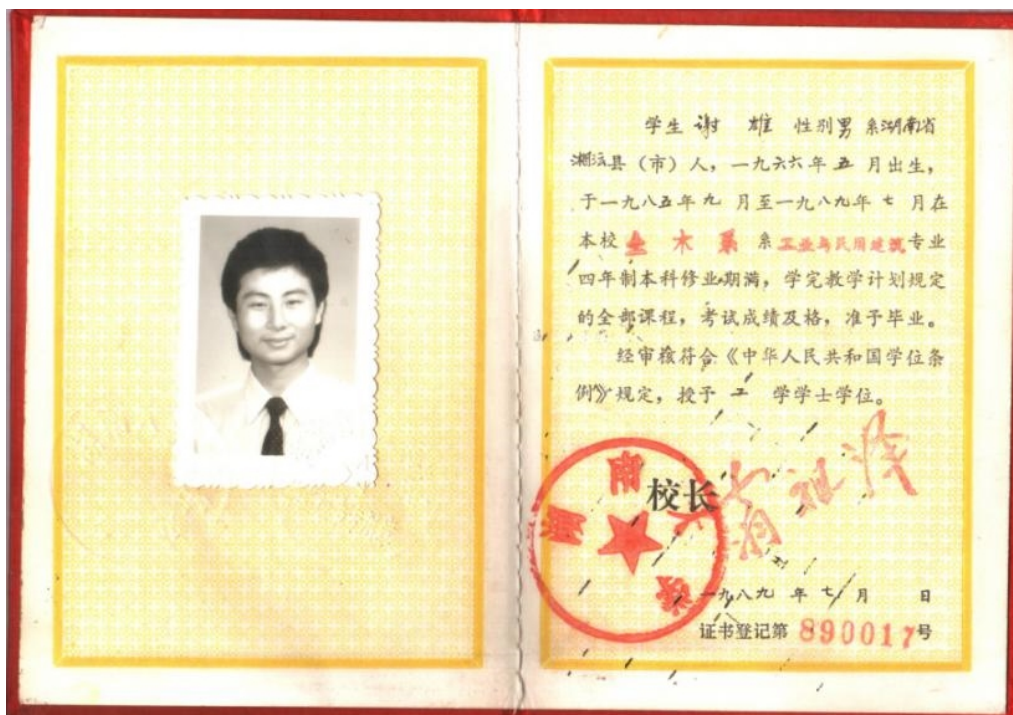 学生 谢 雄 性别 男 系湖南省
湘 县（市）人，一九六六年 五 月出生，
于一九八五年 九 月至一九八九年 七 月在
本校 土 木 系 系 工业与民用建筑 专业
四年制本科修业期满，学完教学计划规定
的全部课程，考试成绩及格，准予毕业。
经审核符合《中华人民共和国学位条
例》规定，授予 工 学学士学位。
湖南大学
校长
一九八九 年 七 月 日
证书登记第 890017 号